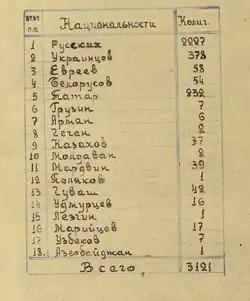 №№ п.п. Национальности Колич.
1 Русских 2227
2 Украинцев 378
3 Евреев 58
4 Белорусов 54
5 Татар 232
6 Грузин 7
7 Армян 6
8 Чечен 2
9 Казахов 37
10 Молдаван 2
11 Мордвин 39
12 Поляков 1
13 Чуваш 42
14 Удмурцев 16
15 Лезгин 1
16 Марийцев 17
17 Узбеков 7
18. Азербайджан 1
Всего 3121